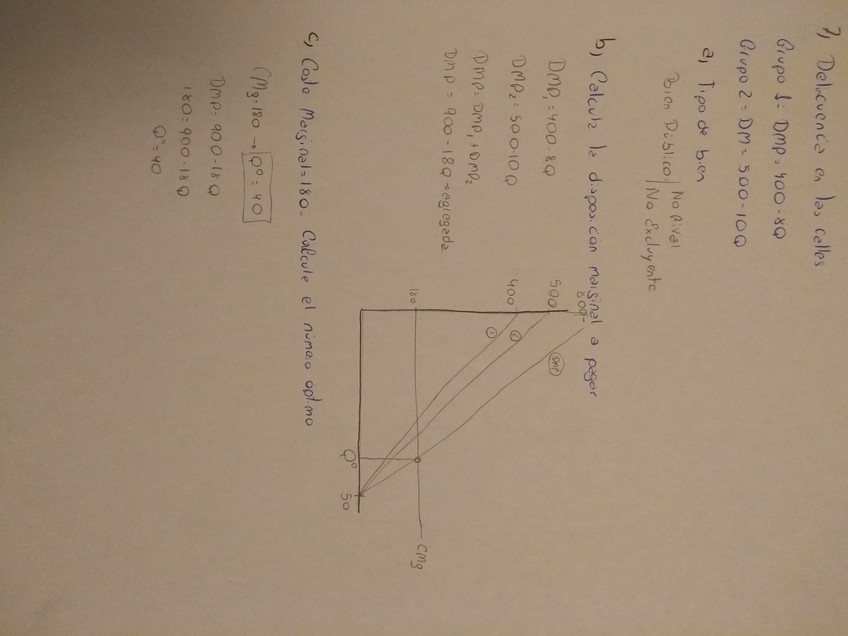 7) Delincuencia en las calles
Grupo 1: DMP = 400 - 8Q
Grupo 2 = DM = 500 - 10Q
a) Tipo de bien
Bien Público: No Rival
No Excluyente
b) Calcula la disposicon marginal a pagar
DMP₁ = 400 - 8Q
DMP₂ = 500 - 10Q
DMP = DMP₁ + DMP₂
DMP = 900 - 18Q → agregada
800
500
400
180
① ② DMP
Q° 50
CMg
c) Coste Marginal = 180. Calcule el número optimo
CMg = 180 → Q° = 40
DMP = 900 - 18Q
180 = 900 - 18Q
Q° = 40